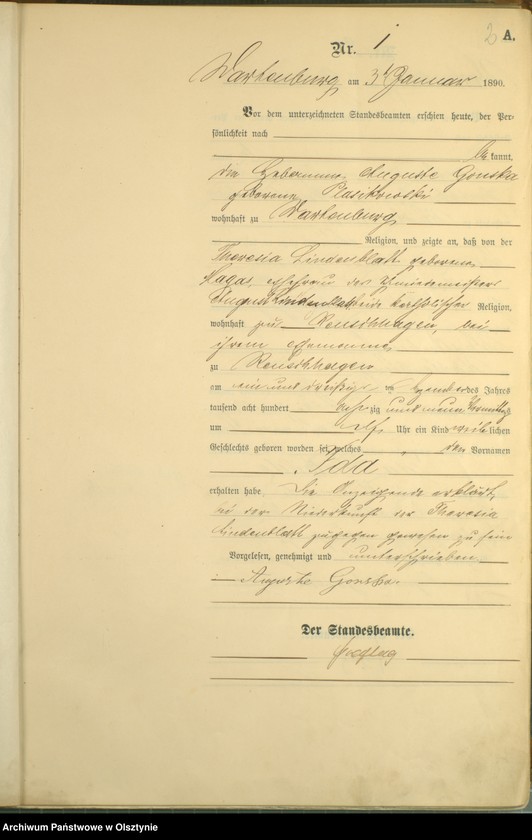 2 A.
Nr. 1
Wartenburg am 3t Januar 1890.
Vor dem unterzeichneten Standesbeamten erschien heute, der Per-
sönlichkeit nach
be kannt,
die Hebamme Auguste Gonska
geborene
wohnhaft zu Wartenburg
Religion, und zeigte an, daß von der
Theresia Lindenblatt geborene
Maga, Ehefrau des Schmiedemeisters
August Lindenblatt beide katholischer Religion,
wohnhaft zu Reuschhagen, bei
ihrem Ehemanne
zu Reuschhagen
am ein und dreißigsten Dezember des Jahres
tausend acht hundert acht zig und neun Vormittags
um elf Uhr ein Kind weib lichen
Geschlechts geboren worden sei, welches den Vornamen
Ida
erhalten habe. Die Anzeigende erklärt,
bei der Niederkunft der Theresia
Lindenblatt zugegen gewesen zu sein
Vorgelesen, genehmigt und unterschrieben
Auguste Gonska.
Der Standesbeamte.
Archiwum Państwowe w Olsztynie